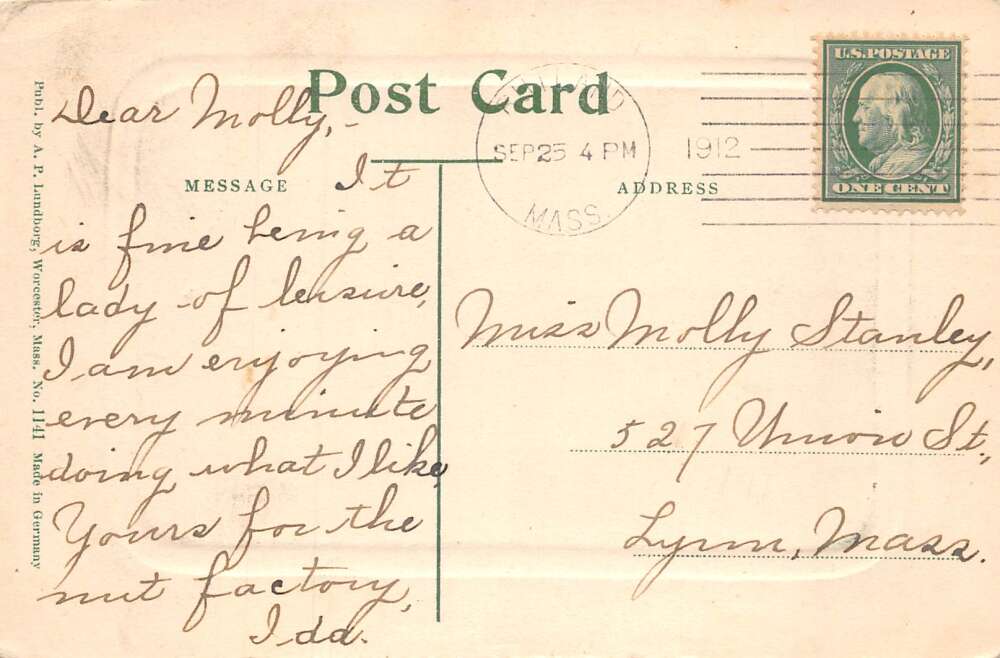 Post Card
MESSAGE
ADDRESS
Dear Molly,-
It
is fine being a
lady of leisure,
I am enjoying
every minute
doing what I like,
Yours for the
nut factory,
Ida.
SEP 25 4 PM
1912
MASS.
U.S. POSTAGE
ONE CENT
Miss Molly Stanley,
527 Union St.,
Lynn, Mass.
Publ. by A. P. Lundborg, Worcester, Mass. No. 1141 Made in Germany